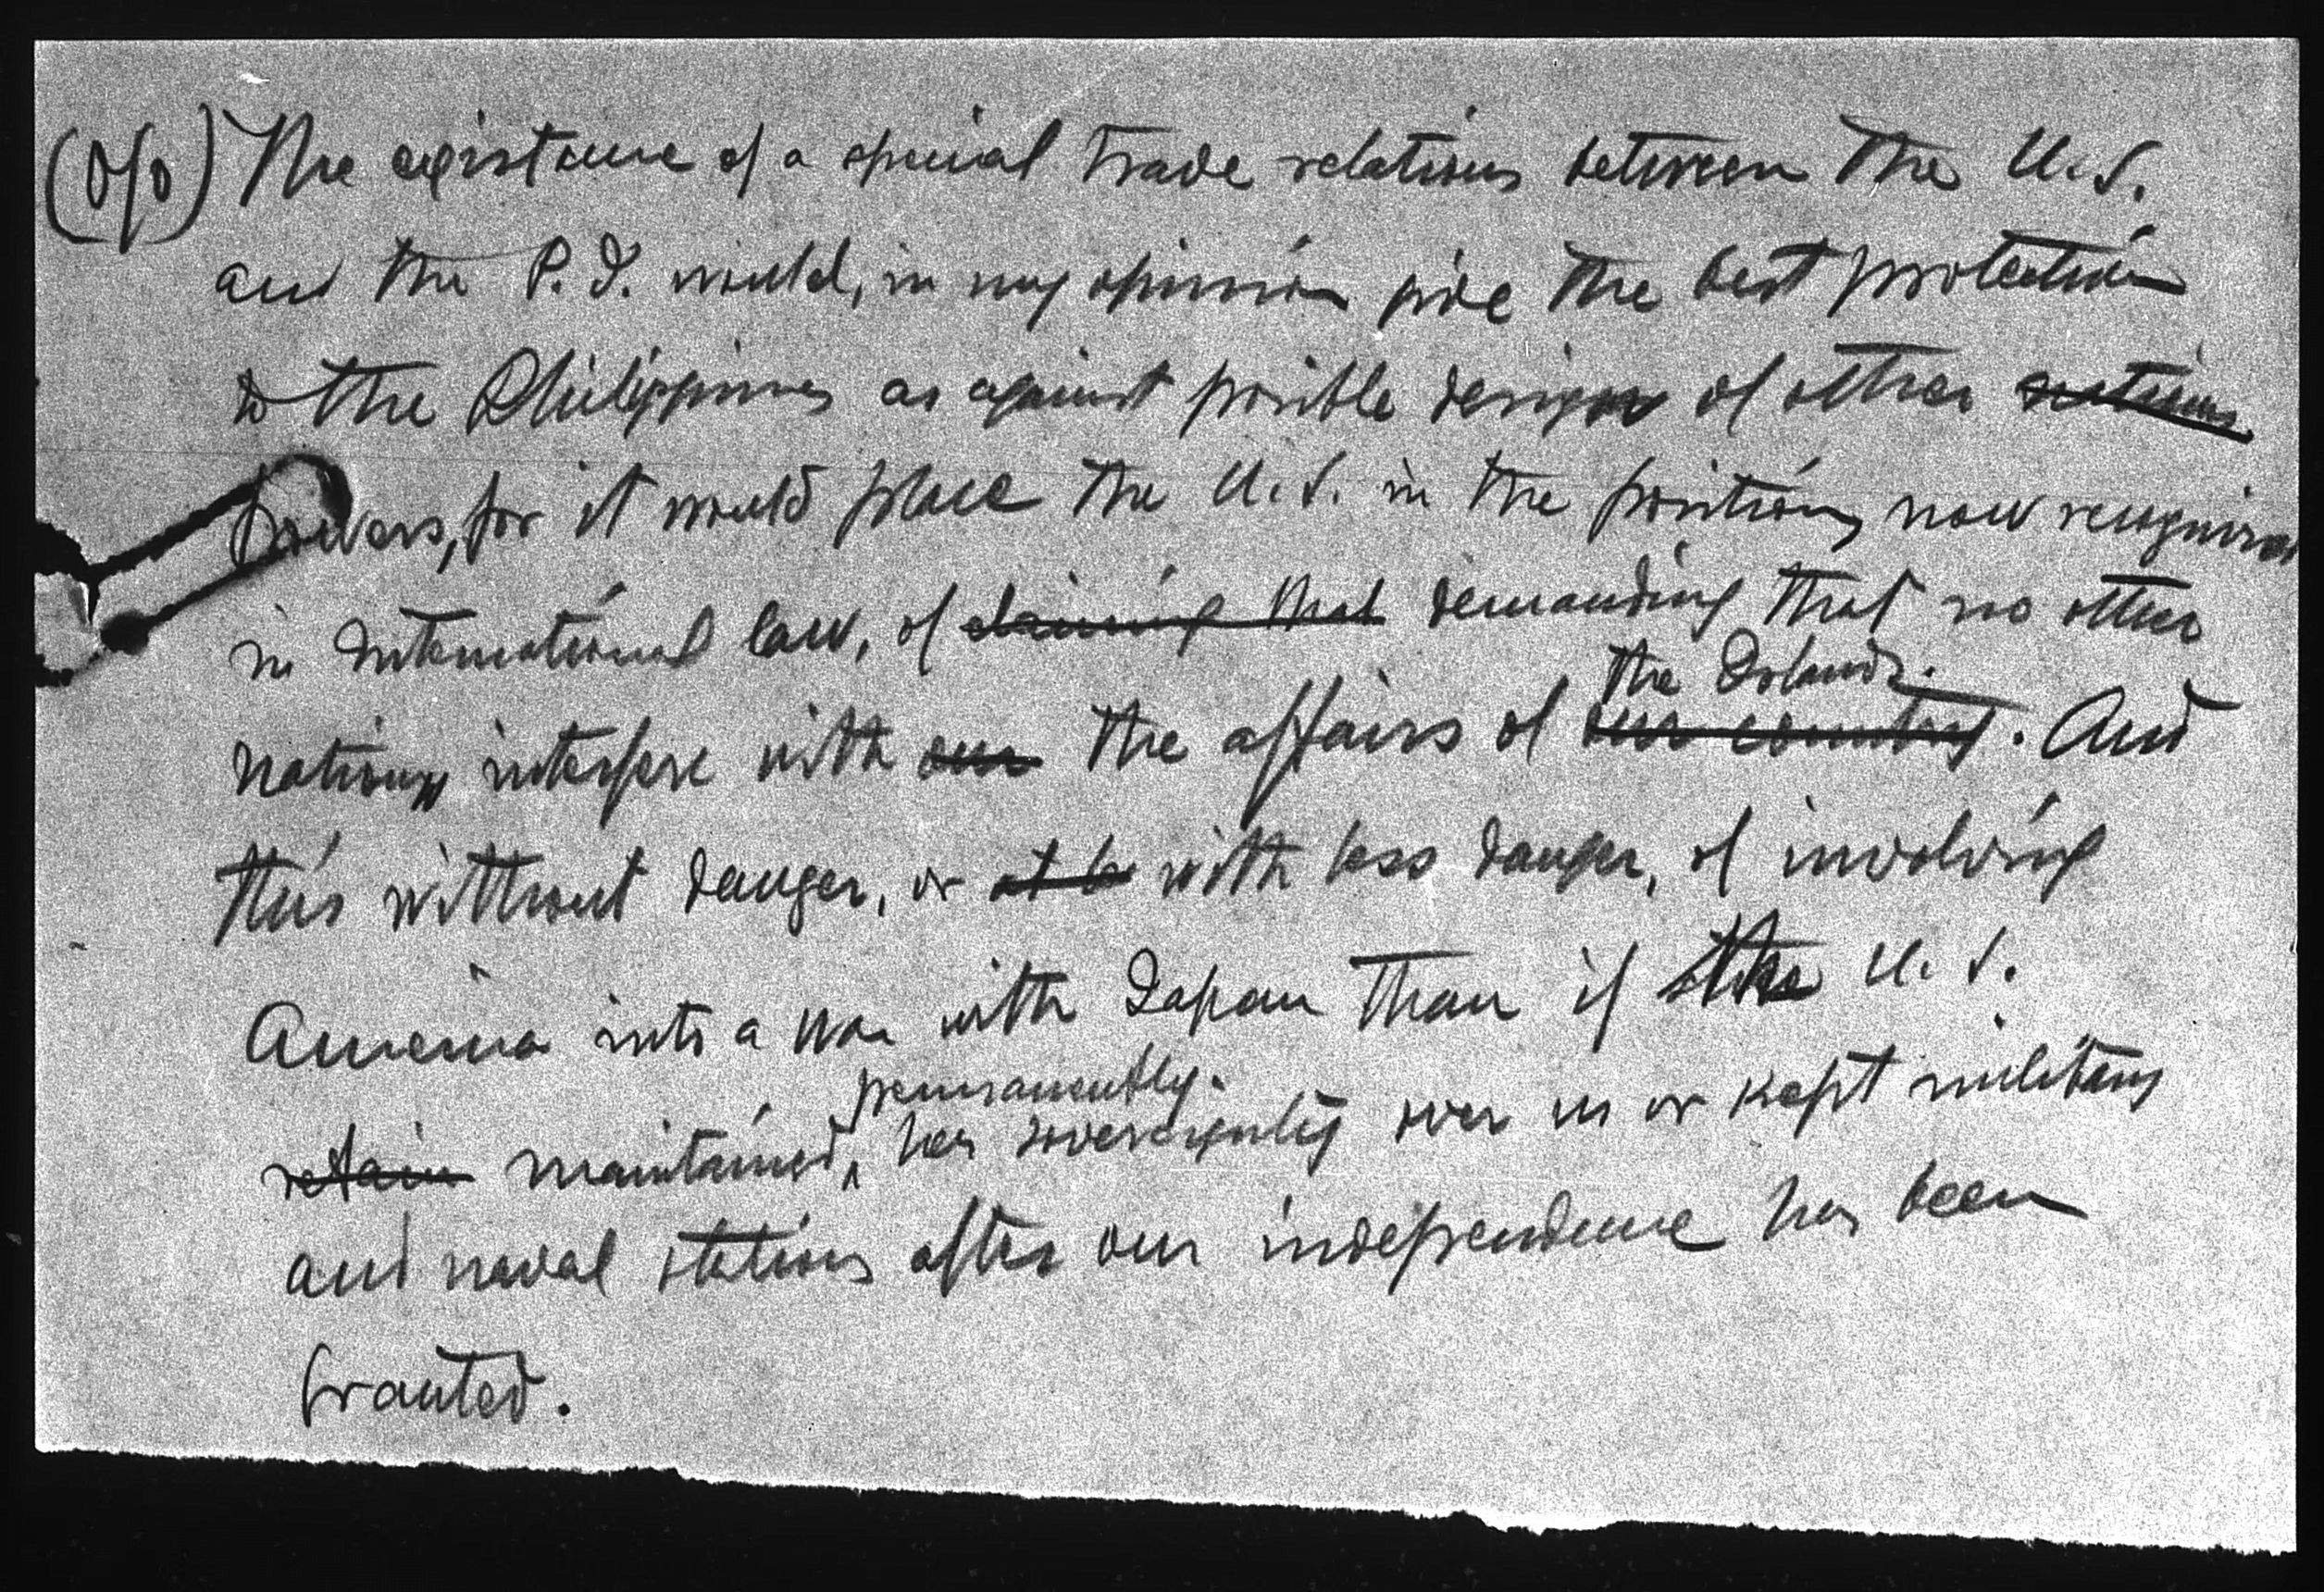 (O/o) The existence of a special trade relations between the U.S.
and the P.I. would, in my opinion give the best protection
to the Philippines as against posible design of other nations
powers, for it would place the U.S. in the position, now recognized
in International law, of claiming that demanding that no other
the Islands.
nation interfere with our the affairs of our country. And
this without danger, or at le with less danger, of involving
America into a war with Japan than if the U.S.
permanently.
retain maintained, her sovereignty over us or kept military
and naval stations after our independence has been
granted.